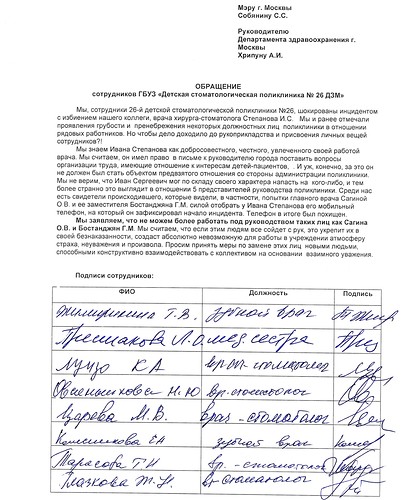 Мэру г. Москвы
Собянину С.С.
Руководителю
Департамента здравоохранения г.
Москвы
Хрипуну А.И.
ОБРАЩЕНИЕ
сотрудников ГБУЗ «Детская стоматологическая поликлиника № 26 ДЗМ»
Мы, сотрудники 26-й детской стоматологической поликлиники №26, шокированы инцидентом
с избиением нашего коллеги, врача хирурга-стоматолога Степанова И.С. Мы и ранее отмечали
проявления грубости и пренебрежения некоторых должностных лиц поликлиники в отношении
рядовых работников. Но чтобы дело доходило до рукоприкладства и присвоения личных вещей
сотрудников?!
Мы знаем Ивана Степанова как добросовестного, честного, увлеченного своей работой
врача. Мы считаем, он имел право в письме к руководителю города поставить вопросы
организации труда, имеющие отношение к интересам детей-пациентов. И уж, конечно, за это он
не должен был стать объектом предвзятого отношения со стороны администрации поликлиники.
Мы не верим, что Иван Сергеевич мог по складу своего характера напасть на кого-либо, и тем
более странно это выглядит в отношении 5 представителей руководства поликлиники. Среди нас
есть свидетели происходившего, которые видели, в частности, попытки главного врача Сагиной
О.В. и ее заместителя Бостанджяна Г.М. силой отобрать у Ивана Степанова его мобильный
телефон, на который он зафиксировал начало инцидента. Телефон в итоге был похищен.
Мы заявляем, что не можем более работать под руководством таких лиц как Сагина
О.В. и Бостанджян Г.М. Мы считаем, что если этим людям все сойдет с рук, это укрепит их в
своей безнаказанности, создаст абсолютно невозможную для работы в учреждении атмосферу
страха, неуважения и произвола. Просим принять меры по замене этих лиц новыми людьми,
способными конструктивно взаимодействовать с коллективом на основании взаимного уважения.
Подписи сотрудников:
ФИО Должность Подпись
Т.В. зубной врач
Л.О. медсестра
КА вр-стоматолог
Н.Ю вр-стоматолог
Царева М.В. врач-стоматолог
Колесникова ЕН зубной врач
Тарасова Г.Н вр.-стоматолог
Глазкова Т.Н. вр-стоматолог